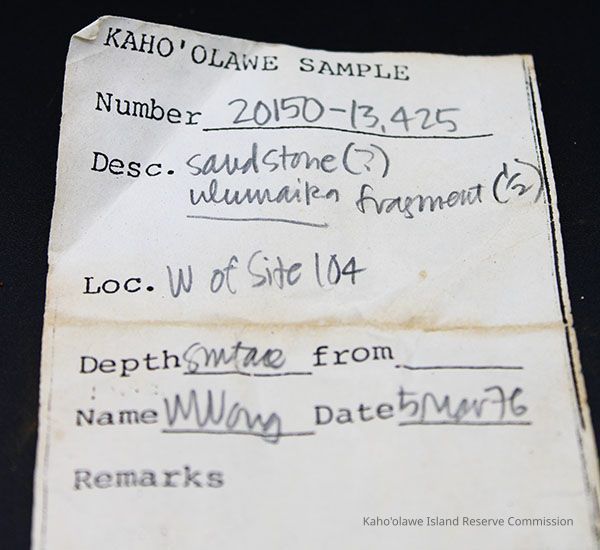 KAHO'OLAWE SAMPLE
Number 20150-13,425
Desc. sandstone(?)
ulumaika fragment (1/2)
Loc. W of Site 104
Depth surface from
Name MWong Date 5 Mar 76
Remarks
Kaho'olawe Island Reserve Commission